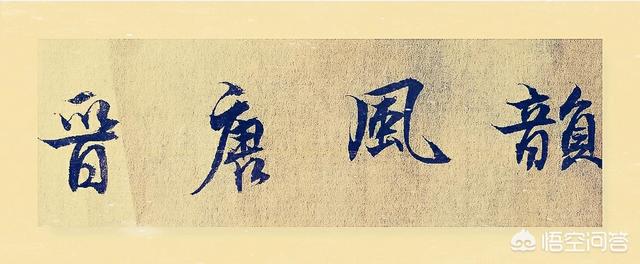 晋唐風韻
悟空问答